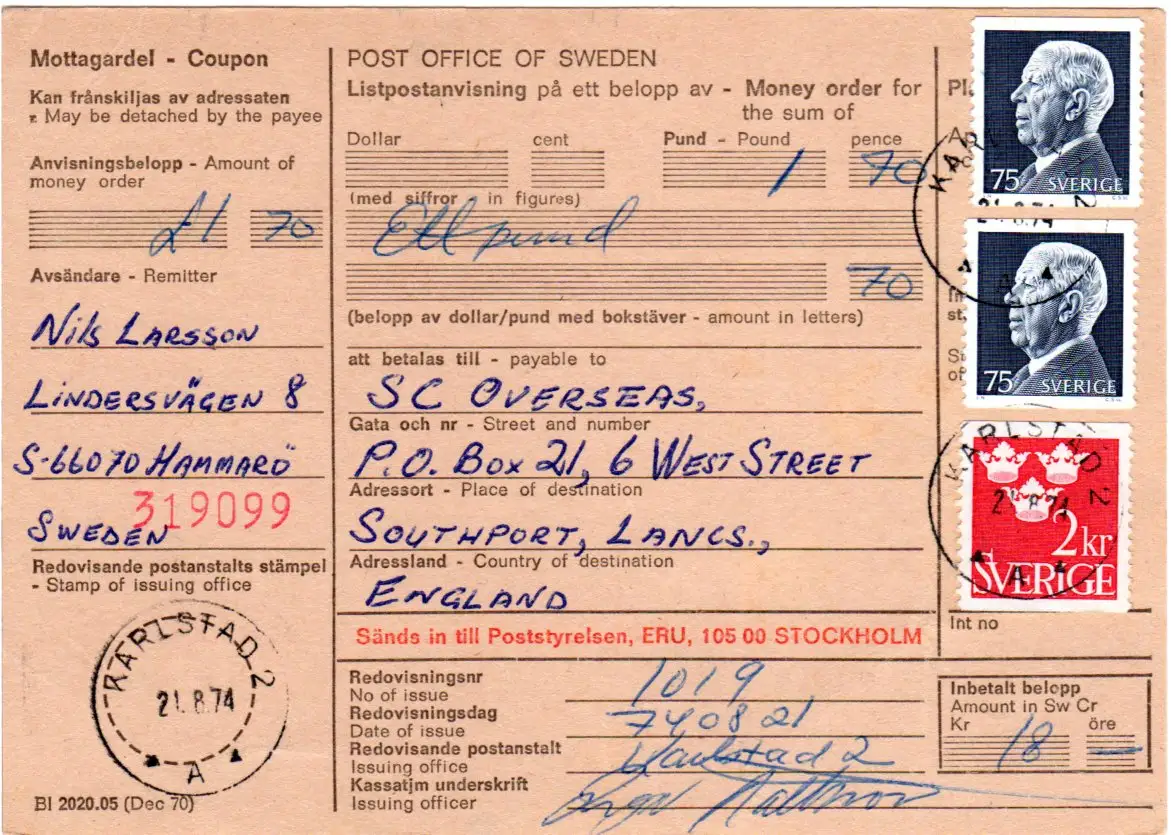 Mottagardel - Coupon
Kan frånskiljas av adressaten
May be detached by the payee
Anvisningsbelopp - Amount of
money order
£1 70
Avsändare - Remitter
Nils Larsson
Lindersvägen 8
S-66070 Hammarö
319099
Sweden
Redovisande postanstalts stämpel
- Stamp of issuing office
KARLSTAD 2
21.8.74
A
BI 2020.05 (Dec 70)
POST OFFICE OF SWEDEN
Listpostanvisning på ett belopp av - Money order for
the sum of
Dollar cent Pund - Pound pence
1 70
(med siffror - in figures)
Ett pund
70
(belopp av dollar/pund med bokstäver - amount in letters)
att betalas till - payable to
SC Overseas,
Gata och nr - Street and number
P.O. Box 21, 6 West Street
Adressort - Place of destination
Southport, Lancs.,
Adressland - Country of destination
England
Sänds in till Poststyrelsen, ERU, 105 00 STOCKHOLM
Redovisningsnr
No of issue
1019
Redovisningsdag
Date of issue
740821
Redovisande postanstalt
Issuing office
Karlstad 2
Kassatjm underskrift
Issuing officer
75 SVERIGE
21.8.74
A
75 SVERIGE
KARLSTAD 2
21.8.74
2kr
SVERIGE
A
Int no
Inbetalt belopp
Amount in Sw Cr
Kr öre
18 —